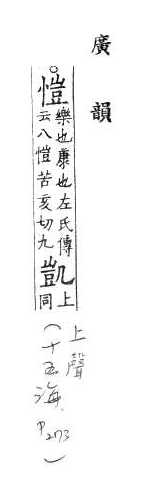 廣韻
愷樂也康也左氏傳
云八愷苦亥切九
凱上
同
上聲
(十五海 P273)